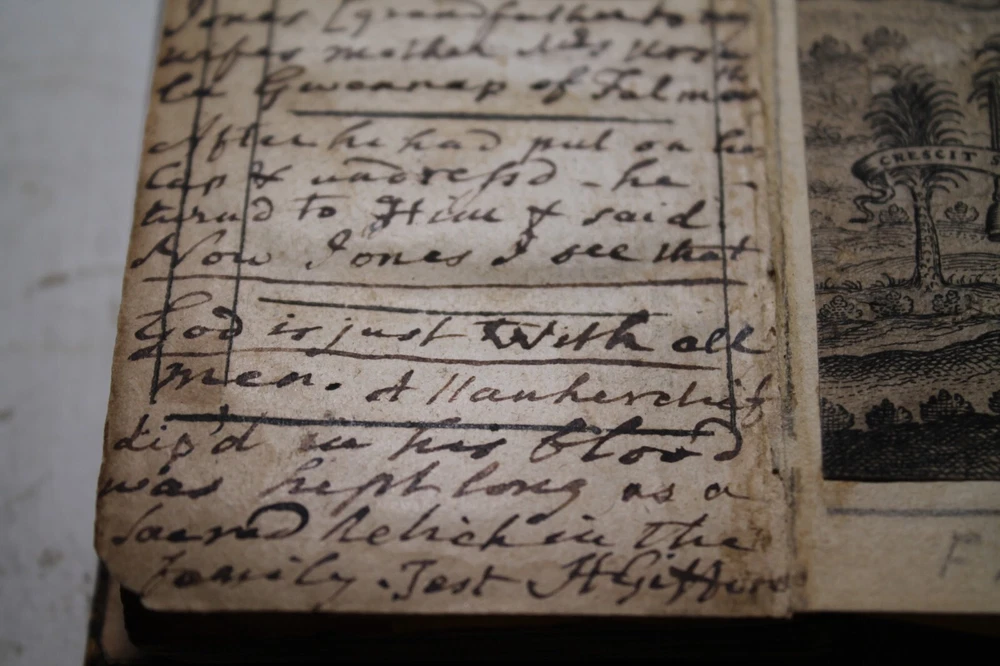 Jones (grandfather to my
wifes mother Mrs
la Gwennap of Falmo
After he had put on his
Cap & undress'd - he
turnd to Him & said
Now Jones I see that
God is just With all
men. A Hankerchif
dip'd in his blood
was kept long as a
Sacred Relick in the
Family. Test H Gifford
CRESCIT S
F